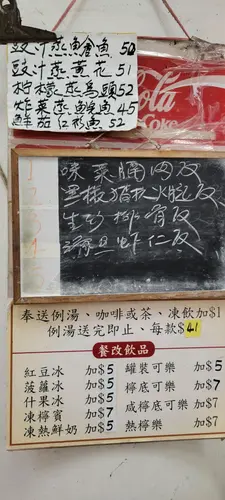 豉汁蒸鯧魚 50
豉汁蒸黃花 51
柠檬蒸烏頭 52
炸菜蒸鯇魚 45
鮮茄红衫魚 52
Coca-Cola
Coke
味菜腩肉飯
生炒排骨飯
滑旦虾仁飯
奉送例湯、咖啡或茶、凍飲加$1
例湯送完即止、每款$41
餐改飲品
紅豆冰 加$5 罐裝可樂 加$5
菠蘿冰 加$5 檸底可樂 加$7
什果冰 加$5 咸檸底可樂 加$7
凍檸賓 加$7 熱檸樂 加$7
凍熱鮮奶 加$5